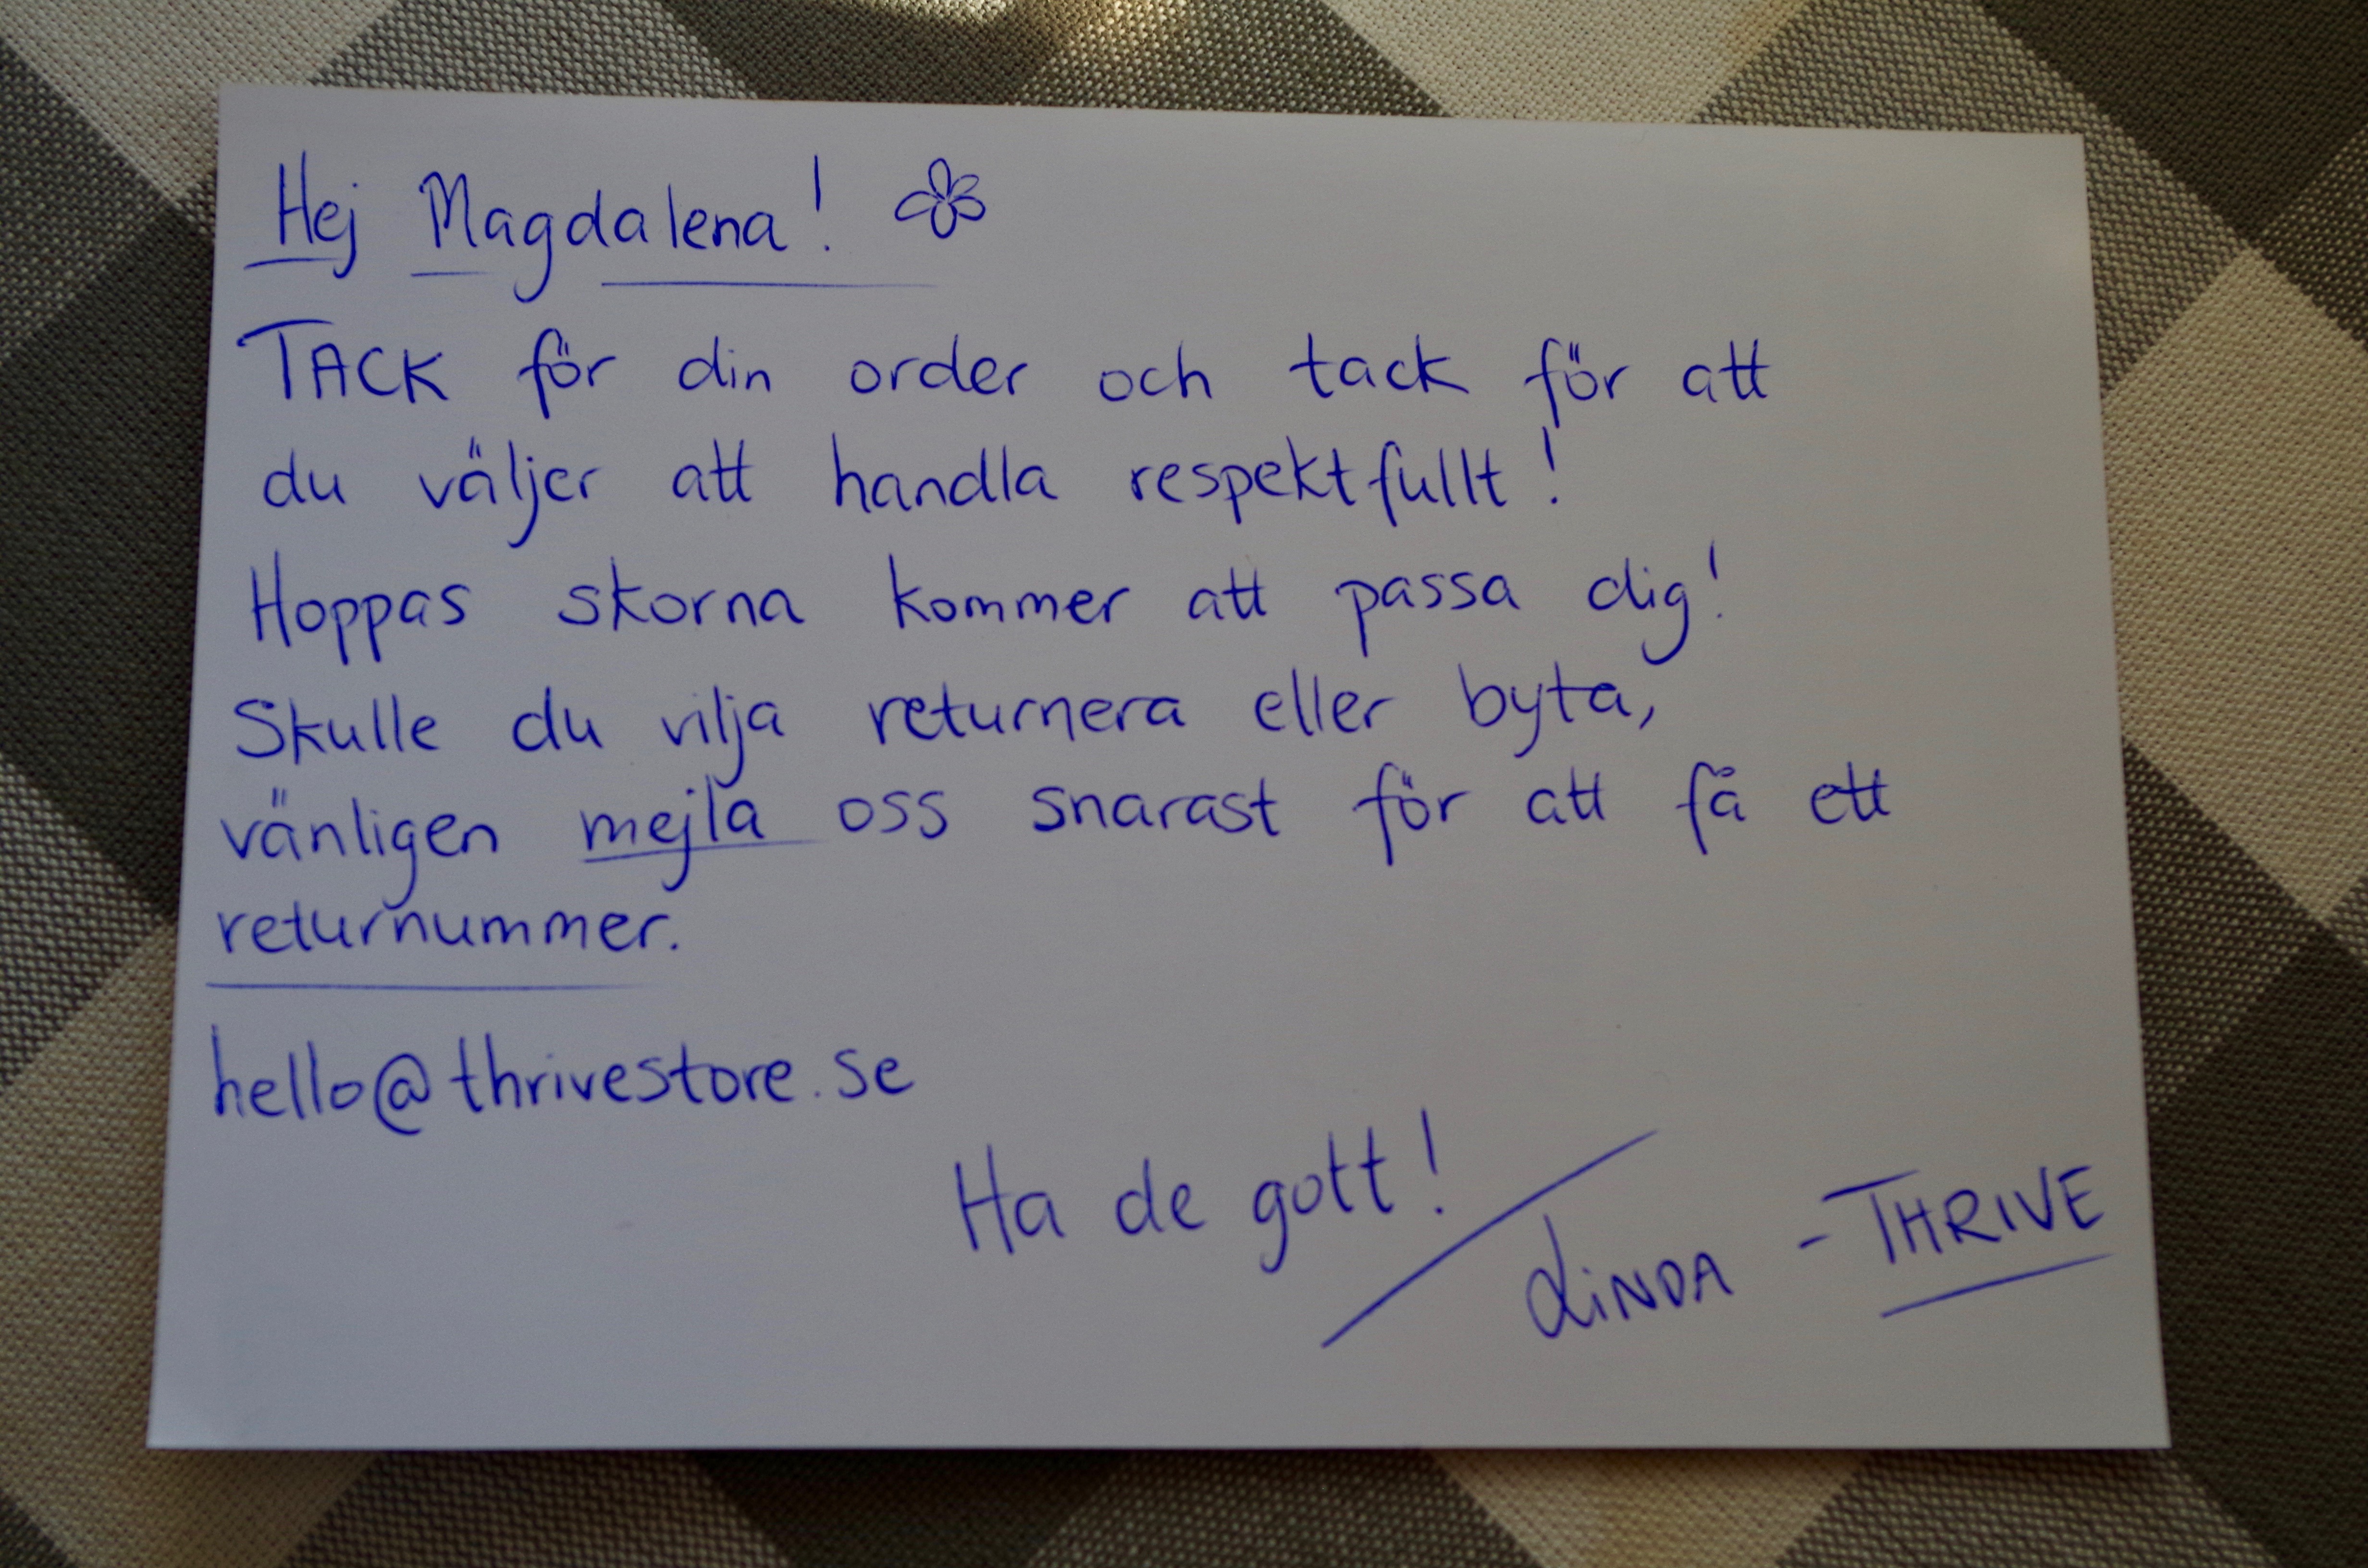 Hej Magdalena!
TACK för din order och tack för att
du väljer att handla respektfullt!
Hoppas skorna kommer att passa dig!
Skulle du vilja returnera eller byta,
vänligen mejla oss snarast för att få ett
returnummer.
hello@thrivestore.se
Ha de gott!
/ LiNDA - THRIVE